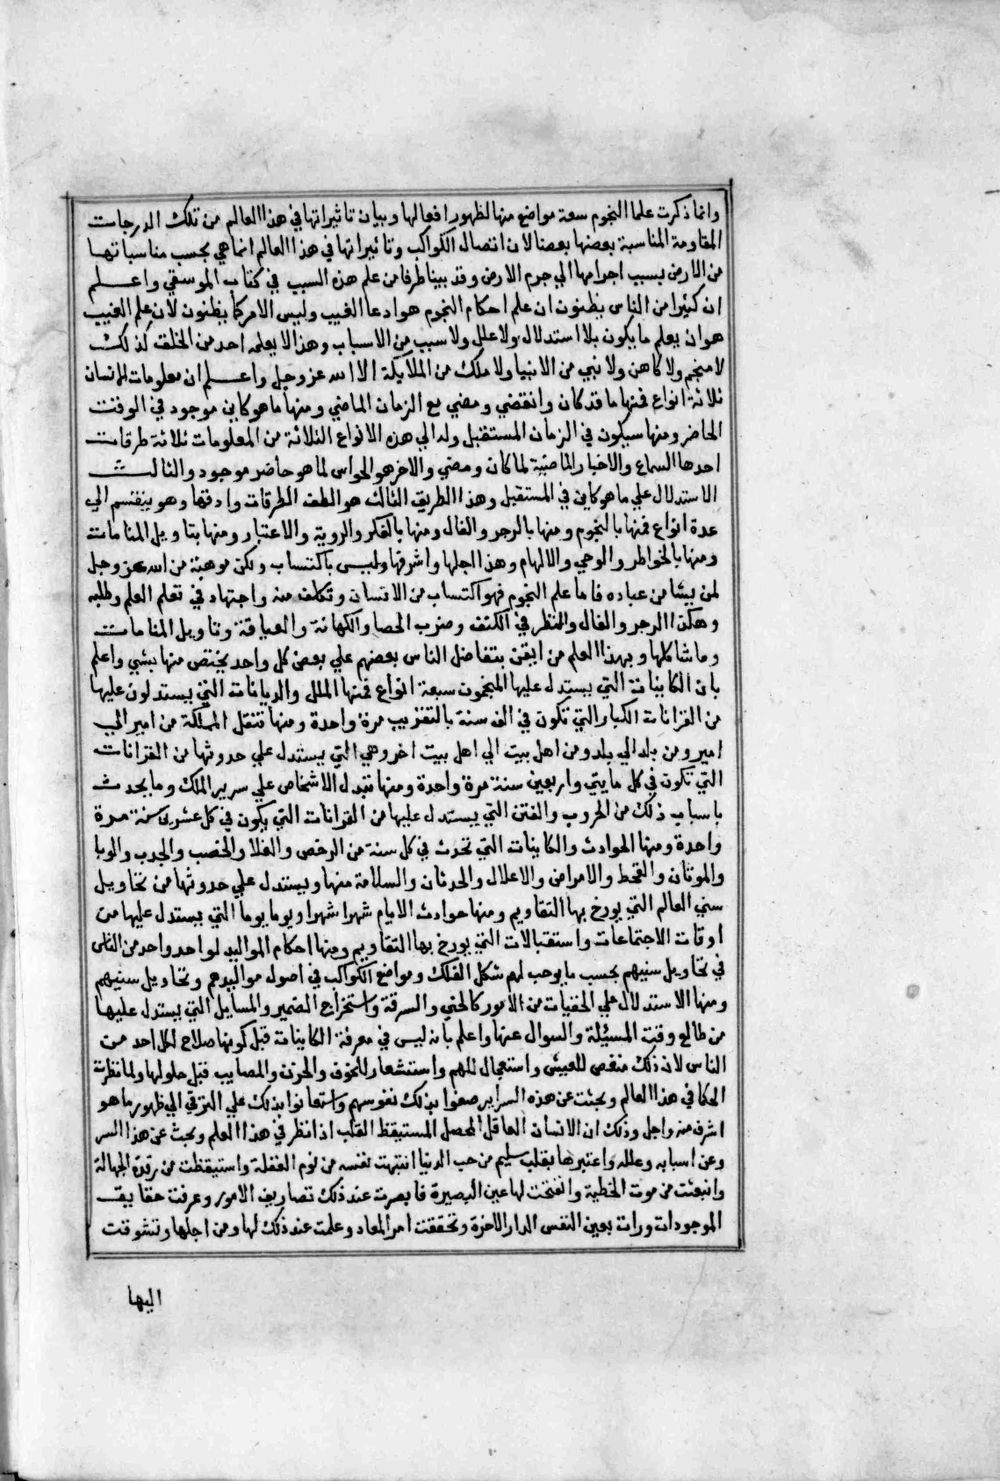 وانما ذكرت علما النجوم سعة مواضع منها لظهور افعالها وبيان تاثيراتها في هذا العالم من تلك الدرجات
المقاومة المناسبة بعضها بعضا لان اتصال الكواكب وتاثيراتها في هذا العالم انما هي بحسب مناسباتها
من الارض بسبب اجرامها الي جرم الارض وقد بينا طرفا من علم هذه السبب في كتاب الموسقي واعلم
ان كثيرا من الناس يظنون ان علم احكام النجوم هو ادعا الغيب وليس الامر كما يظنون لان علم الغيب
هو ان يعلم ما يكون بلا استدلال ولا علل ولا سبب من الاسباب وهذا لا يعلمه احد من الخلق كذلك
لا منجم ولا كاهن ولا نبي من الانبيا ولا ملك من الملايكة الا الله عز وجل واعلم ان معلومات الانسان
ثلاثة انواع فمنها ما قد كان وانقضي ومضي مع الزمان الماضي ومنها ما هو كاين موجود في الوقت
الحاضر ومنها سيكون في الزمان المستقبل وله الي هذه الانواع الثلاثة من المعلومات ثلاثة طرقات
احدها السماع والاخبار الماضية لما كان ومضي والاخر هو الحواس لما هو حاضر موجود والثالث
الاستدلال علي ما هو كاين في المستقبل وهذا الطريق الثالث هو الطف الطرقات وادقها وهو ينقسم الي
عدة انواع فمنها بالنجوم ومنها بالزجر والفال ومنها بالفكر والروية والاعتبار ومنها بتاويل المنامات
ومنها بالخواطر والوحي والالهام وهذا اجلها واشرفها وليس باكتساب ولكن موهبة من الله عز وجل
لمن يشا من عباده فاما علم النجوم فهو اكتساب من الانسان وتكلف منه واجتهاد في تعلم العلم وطلبه
وهكذا الزجر والفال والنظر في الكتف وضرب الحصا والكهانة والعيافة وتاويل المنامات
وما شاكلها وبهذا العلم من ايقن بتفاضل الناس بعضهم علي بعض كل واحد يختص منها بشي واعلم
بان الكاينات التي يستدل عليها المنجمون سبعة انواع فمنها الملل والديانات التي يستدلون عليها
من القرانات الكبار التي تكون في الف سنة بالتقريب مرة واحدة ومنها تنقل المملكة من امير الي
امير ومن بلد الي بلد ومن اهل بيت الي اهل بيت اخر وهي التي يستدل علي حدوثها من القرانات
التي تكون في كل مايتي واربعين سنة مرة واحدة ومنها تبدل الاشخاص علي سرير الملك وما يحدث
باسباب ذلك من الحروب والفتن التي يستدل عليها من القرانات التي يكون في كل عشرين سنة مرة
واحدة ومنها الحوادث والكاينات التي تحدث في كل سنة من الرخص والغلا والخصب والجدب والوبا
والموتان والقحط والامراض والاعلال والحدثان والسلامة منها ويستدل علي حدوثها من تحاويل
سني العالم التي يورخ بها التقاويم ومنها حوادث الايام شهرا شهرا ويوما يوما التي يستدل عليها من
اوقات الاجتماعات واستقبالات التي يورخ بها التقاويم ومنها احكام المواليد لواحد واحد من الناس
في تحاويل سنيهم بحسب ما يوجب لهم شكل الفلك ومواضع الكواكب في اصول مواليدهم وتحاويل سنيهم
ومنها الاستدلال علي الخفيات من الامور كالخبي والسرقة واستخراج الضمير والمسايل التي يستدل عليها
من طالع وقت المسئلة والسوال عنها واعلم بانه ليس في معرفة الكاينات قبل كونها صلاح لكل احد من
الناس لان ذلك منغص للعيش واستعجال للهم واستشعار للخوف والحزن والمصايب قبل حلولها ولما نظرت
الحكما في هذا العالم وبحثت عن هذه السراير صفوا بذلك نفوسهم واستعانوا بذلك علي الترقي الي ظهور ما هو
اشرف منه واجل وذلك ان الانسان العاقل المحصل المستيقظ القلب اذا نظر في هذا العلم وبحث عن هذا السر
وعن اسبابه وعلله واعتبرها بقلب سليم من حب الدنيا انتبهت نفسه من نوم الغفلة واستيقظت من رقدة الجهالة
وانبعثت من موت الخطية وانفتحت لها عين البصيرة فابصرت عند ذلك تصاريف الامور وعرفت حقايق
الموجودات ورات بعين النفس الدار الاخرة وتحققت امر المعاد وعلمت عند ذلك لها ومن اجلها وتشوقت
اليها